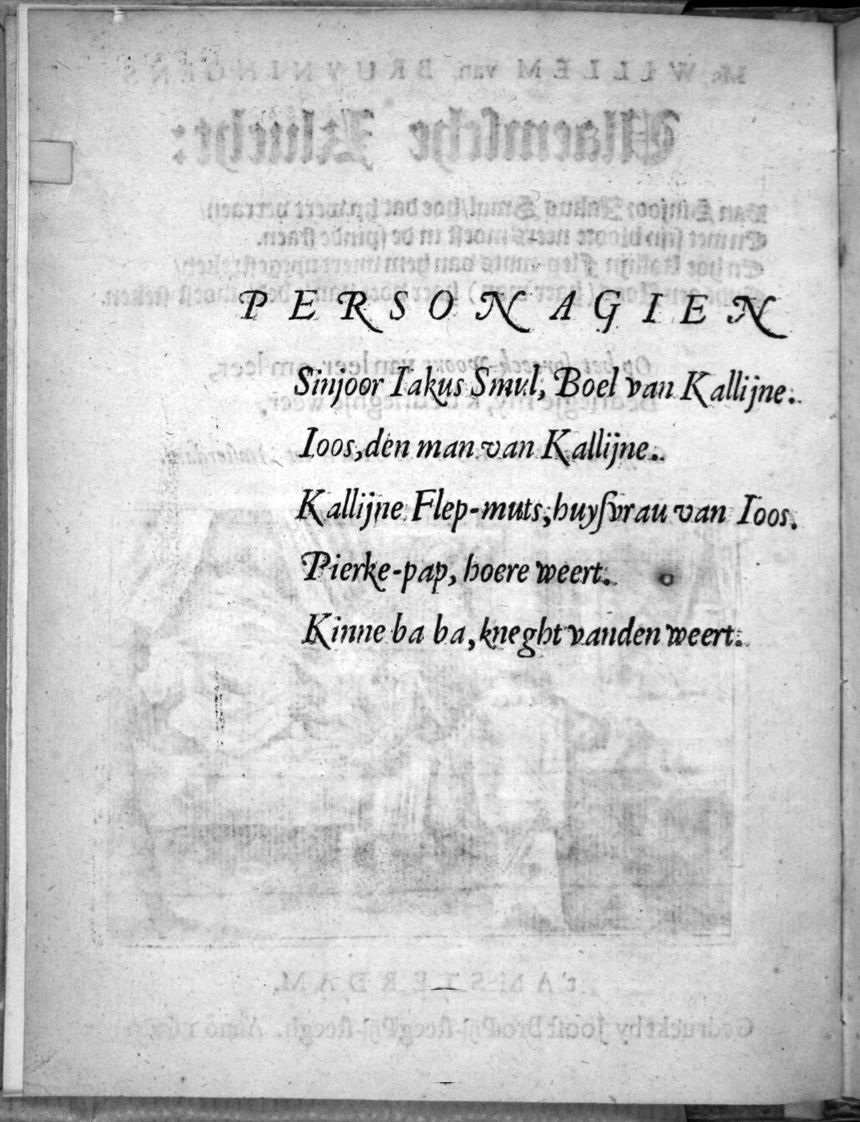 PERSONAGIEN
Sinjoor Iakus Smul, Boel van Kallijne.
Ioos, den man van Kallijne.
Kallijne Flep-muts, huyſvrau van Ioos.
Pierke-pap, hoere weert.
Kinne ba ba, kneght vanden weert.